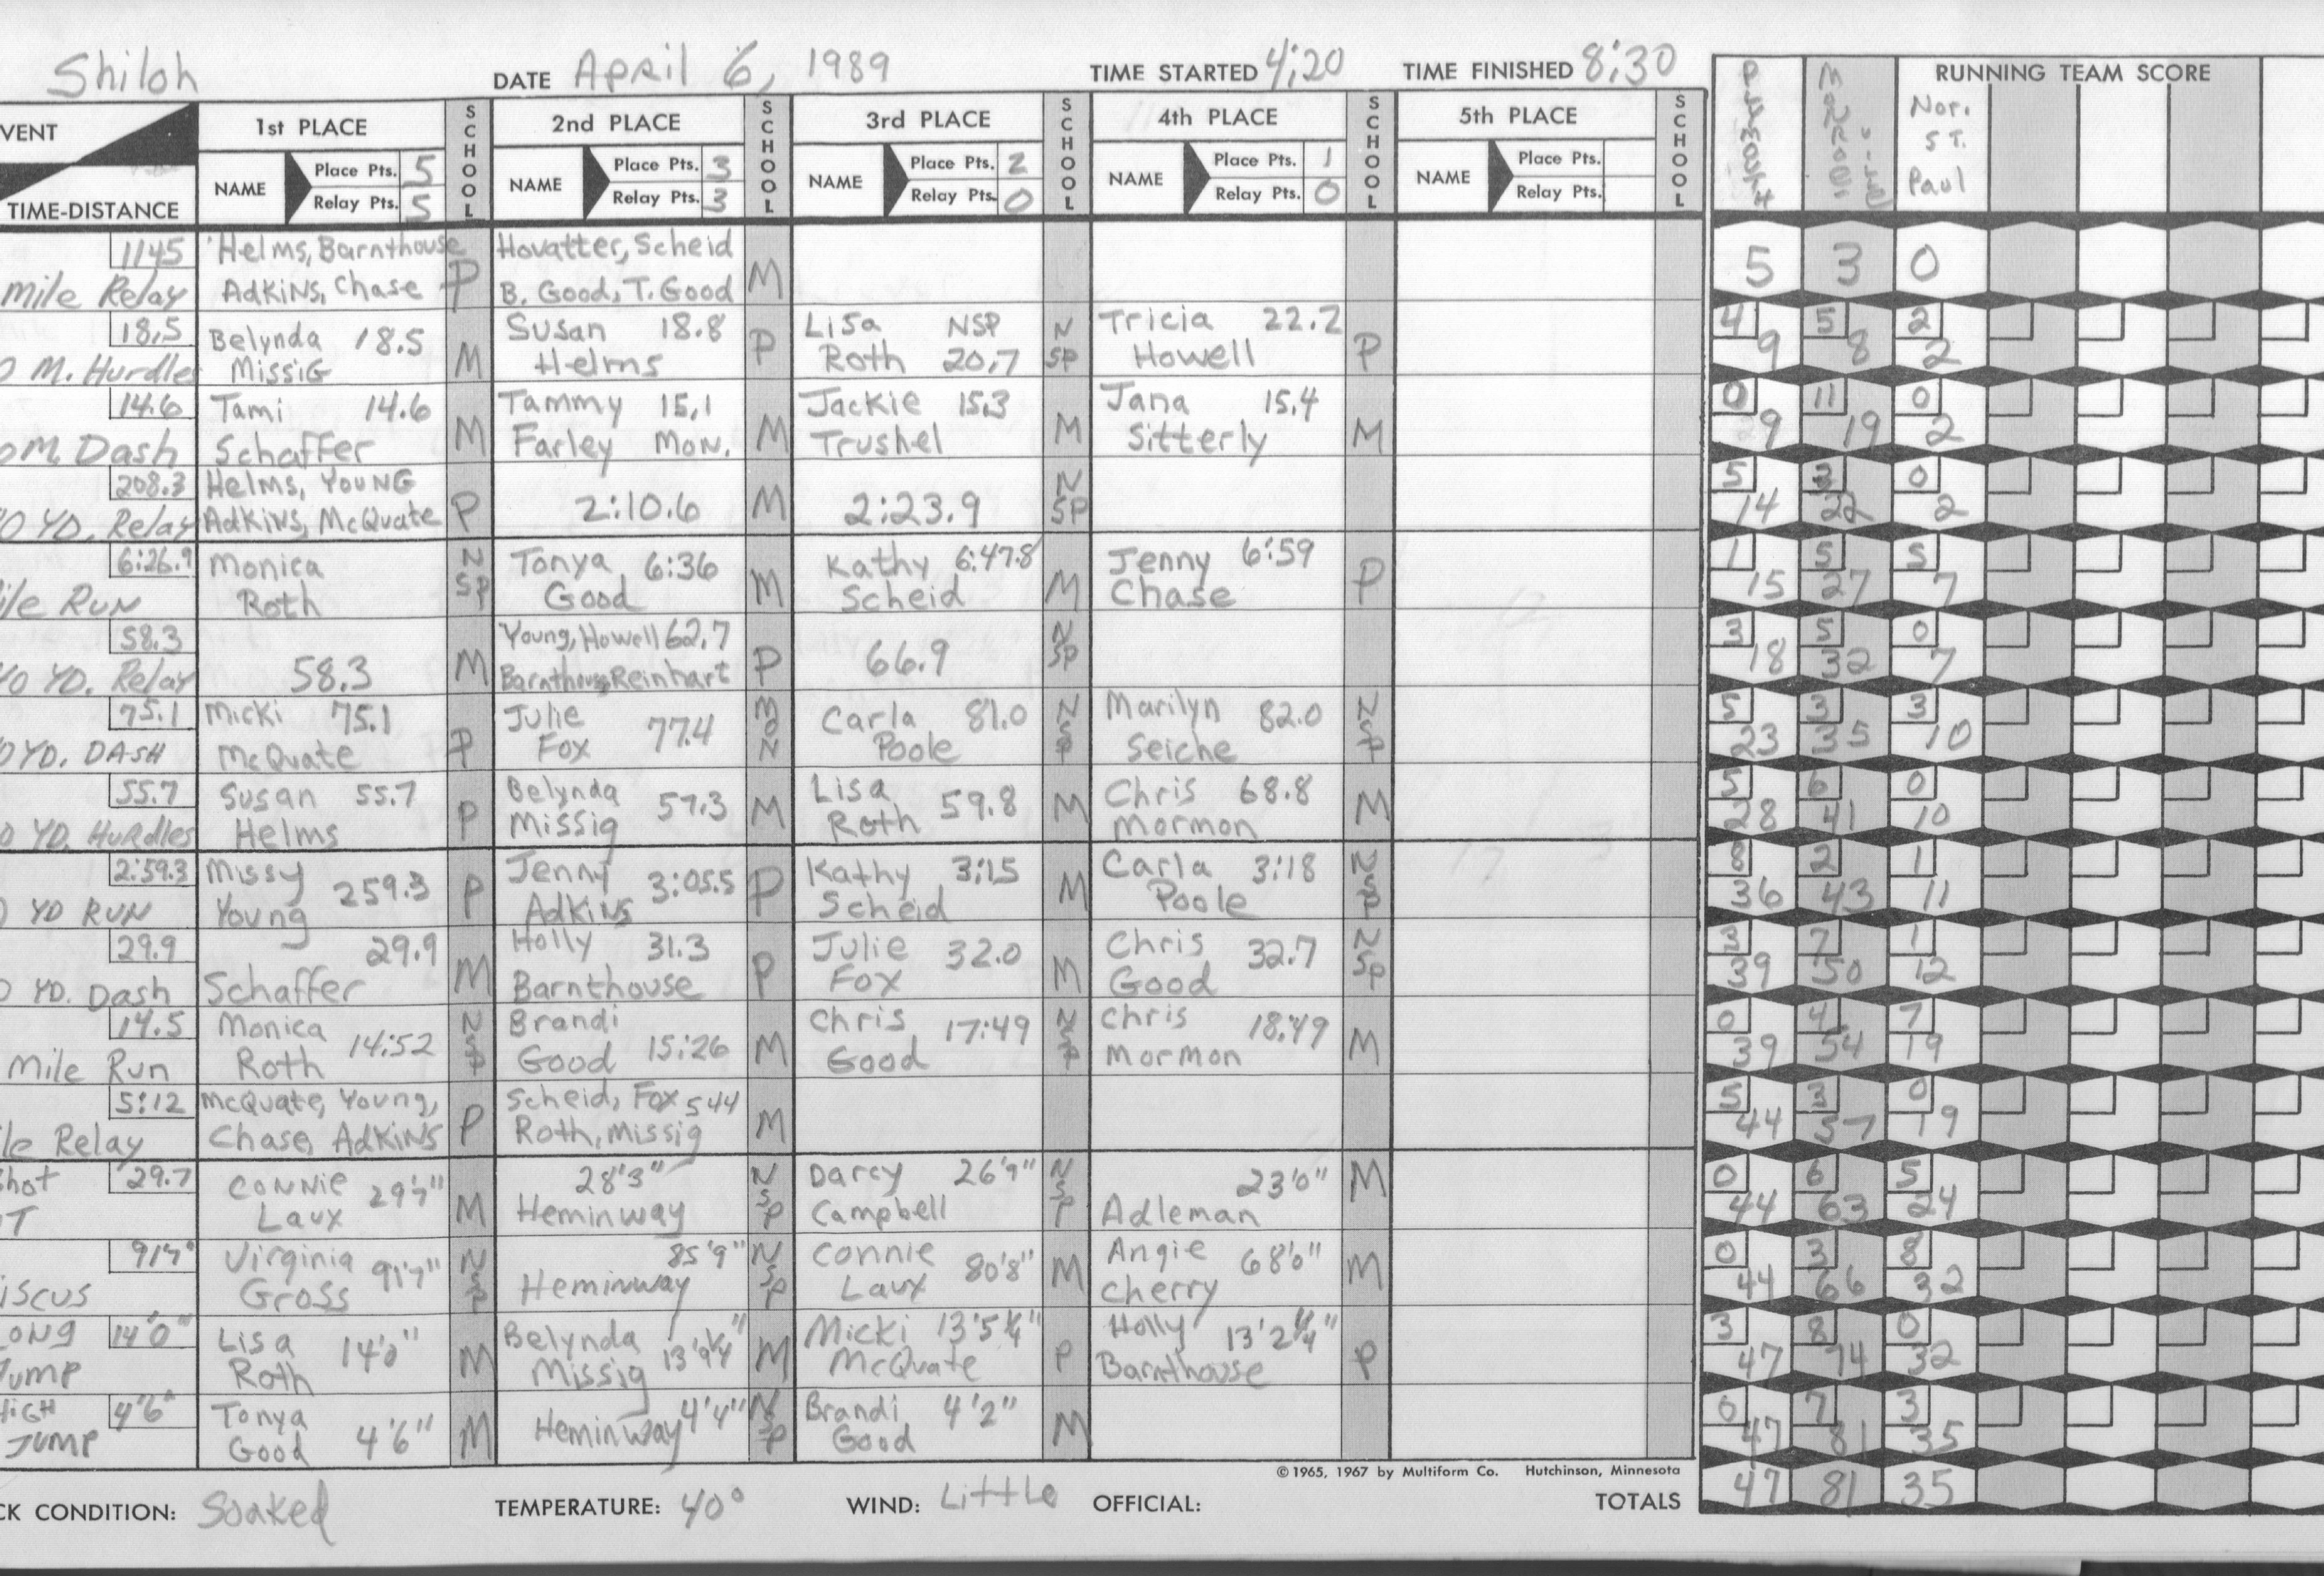 Shiloh DATE April 6, 1989 TIME STARTED 4:20 TIME FINISHED 8:30
RUNNING TEAM SCORE
Plymouth
Nor.
ST.
Paul
VENT
TIME-DISTANCE
1st PLACE
NAME Place Pts. 5
Relay Pts. 5
SCHOOL
2nd PLACE
NAME Place Pts. 3
Relay Pts. 3
SCHOOL
3rd PLACE
NAME Place Pts. 2
Relay Pts. 0
SCHOOL
4th PLACE
NAME Place Pts. 1
Relay Pts. 0
SCHOOL
5th PLACE
NAME Place Pts.
Relay Pts.
SCHOOL
1145 Helms, Barnthouse Hovatter, Scheid
mile Relay Adkins, Chase P B. Good, T. Good M
5 3 0
18.5 Belynda 18.5 Susan 18.8 Lisa NSP N Tricia 22.2
0 M. Hurdles Missig M Helms P Roth 20.7 SP Howell P
4 5 2
9 8 2
14.6 Tami 14.6 Tammy 15.1 Jackie 15.3 Jana 15.4
0 M Dash Schaffer M Farley Mon. M Trushel M Sitterly M
0 11 0
9 19 2
208.3 Helms, Young N
0 YD. Relay Adkins, McQuate P 2:10.6 M 2:23.9 SP
5 3 0
14 22 2
6:26.9 Monica N Tonya 6:36 Kathy 6:47.8 Jenny 6:59
ile Run Roth SP Good M Scheid M Chase P
1 5 5
15 27 7
58.3 Young, Howell 62.7 N
40 YD. Relay 58.3 M Barnthouse, Reinhart P 66.9 SP
3 5 0
18 32 7
75.1 Micki 75.1 Julie 77.4 MON Carla 81.0 NSP Marilyn 82.0 NSP
0 YD. DASH McQuate P Fox Poole Seiche
5 3 3
23 35 10
55.7 Susan 55.7 Belynda 57.3 Lisa 59.8 Chris 68.8
0 YD. Hurdles Helms P Missig M Roth M Mormon M
5 6 0
28 41 10
2:59.3 Missy 259.3 Jenny 3:05.5 Kathy 3:15 Carla 3:18 NSP
0 YD RUN Young P Adkins P Scheid M Poole
8 2 1
36 43 11
29.9 29.9 Holly 31.3 Julie 32.0 Chris 32.7 N
0 YD. Dash Schaffer M Barnthouse P Fox M Good SP
3 7 1
39 50 12
14.5 Monica 14:52 NSP Brandi 15:26 Chris 17:49 NSP Chris 18:49
Mile Run Roth Good M Good Mormon M
0 4 7
39 54 19
5:12 McQuate, Young, Scheid, Fox 544
le Relay Chase, Adkins P Roth, Missig M
5 3 0
44 57 19
hot 29.7 Connie 29'7" 28'3" NSP Darcy 26'9" NSP 23'0" M
T Laux M Heminway Campbell Adleman
0 6 5
44 63 24
91'7" Virginia 91'7" NSP 85'9" NSP Connie 80'8" Angie 68'0"
iscus Gross Heminway Laux M Cherry M
0 3 8
44 66 32
ong 14'0" Lisa 14'0" Belynda Micki 13'5¼" Holly 13'2¼"
Jump Roth M Missig 13'9¼" M McQuate P Barnthouse P
3 8 0
47 74 32
High 4'6" Tonya 4'4" NSP Brandi 4'2"
Jump Good 4'6" M Heminway Good M
0 7 3
47 81 35
©1965, 1967 by Multiform Co. Hutchinson, Minnesota
CK CONDITION: Soaked TEMPERATURE: 40° WIND: Little OFFICIAL: TOTALS 47 81 35